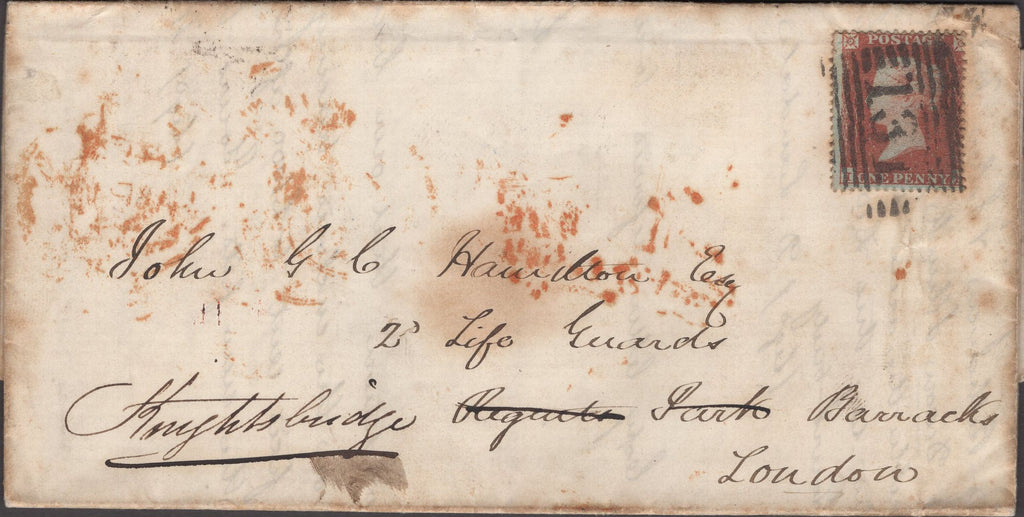 POSTAGE
ONE PENNY
John G C Hamilton Esq
2ᵈ Life Guards
Knightsbridge Regents Park Barracks
London